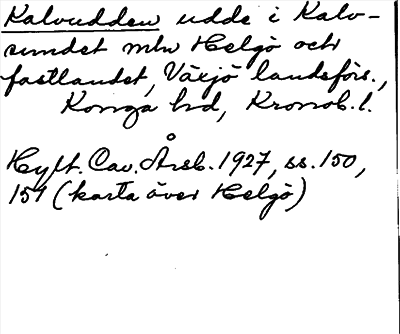 Kalvudden udde i Kalv-
sundet mln Helgö och
fastlandet, Växjö landsförs.,
Konga hd, Kronob. l.
Hylt. Cav. Årsb. 1927, ss. 150,
151 (karta över Helgö)